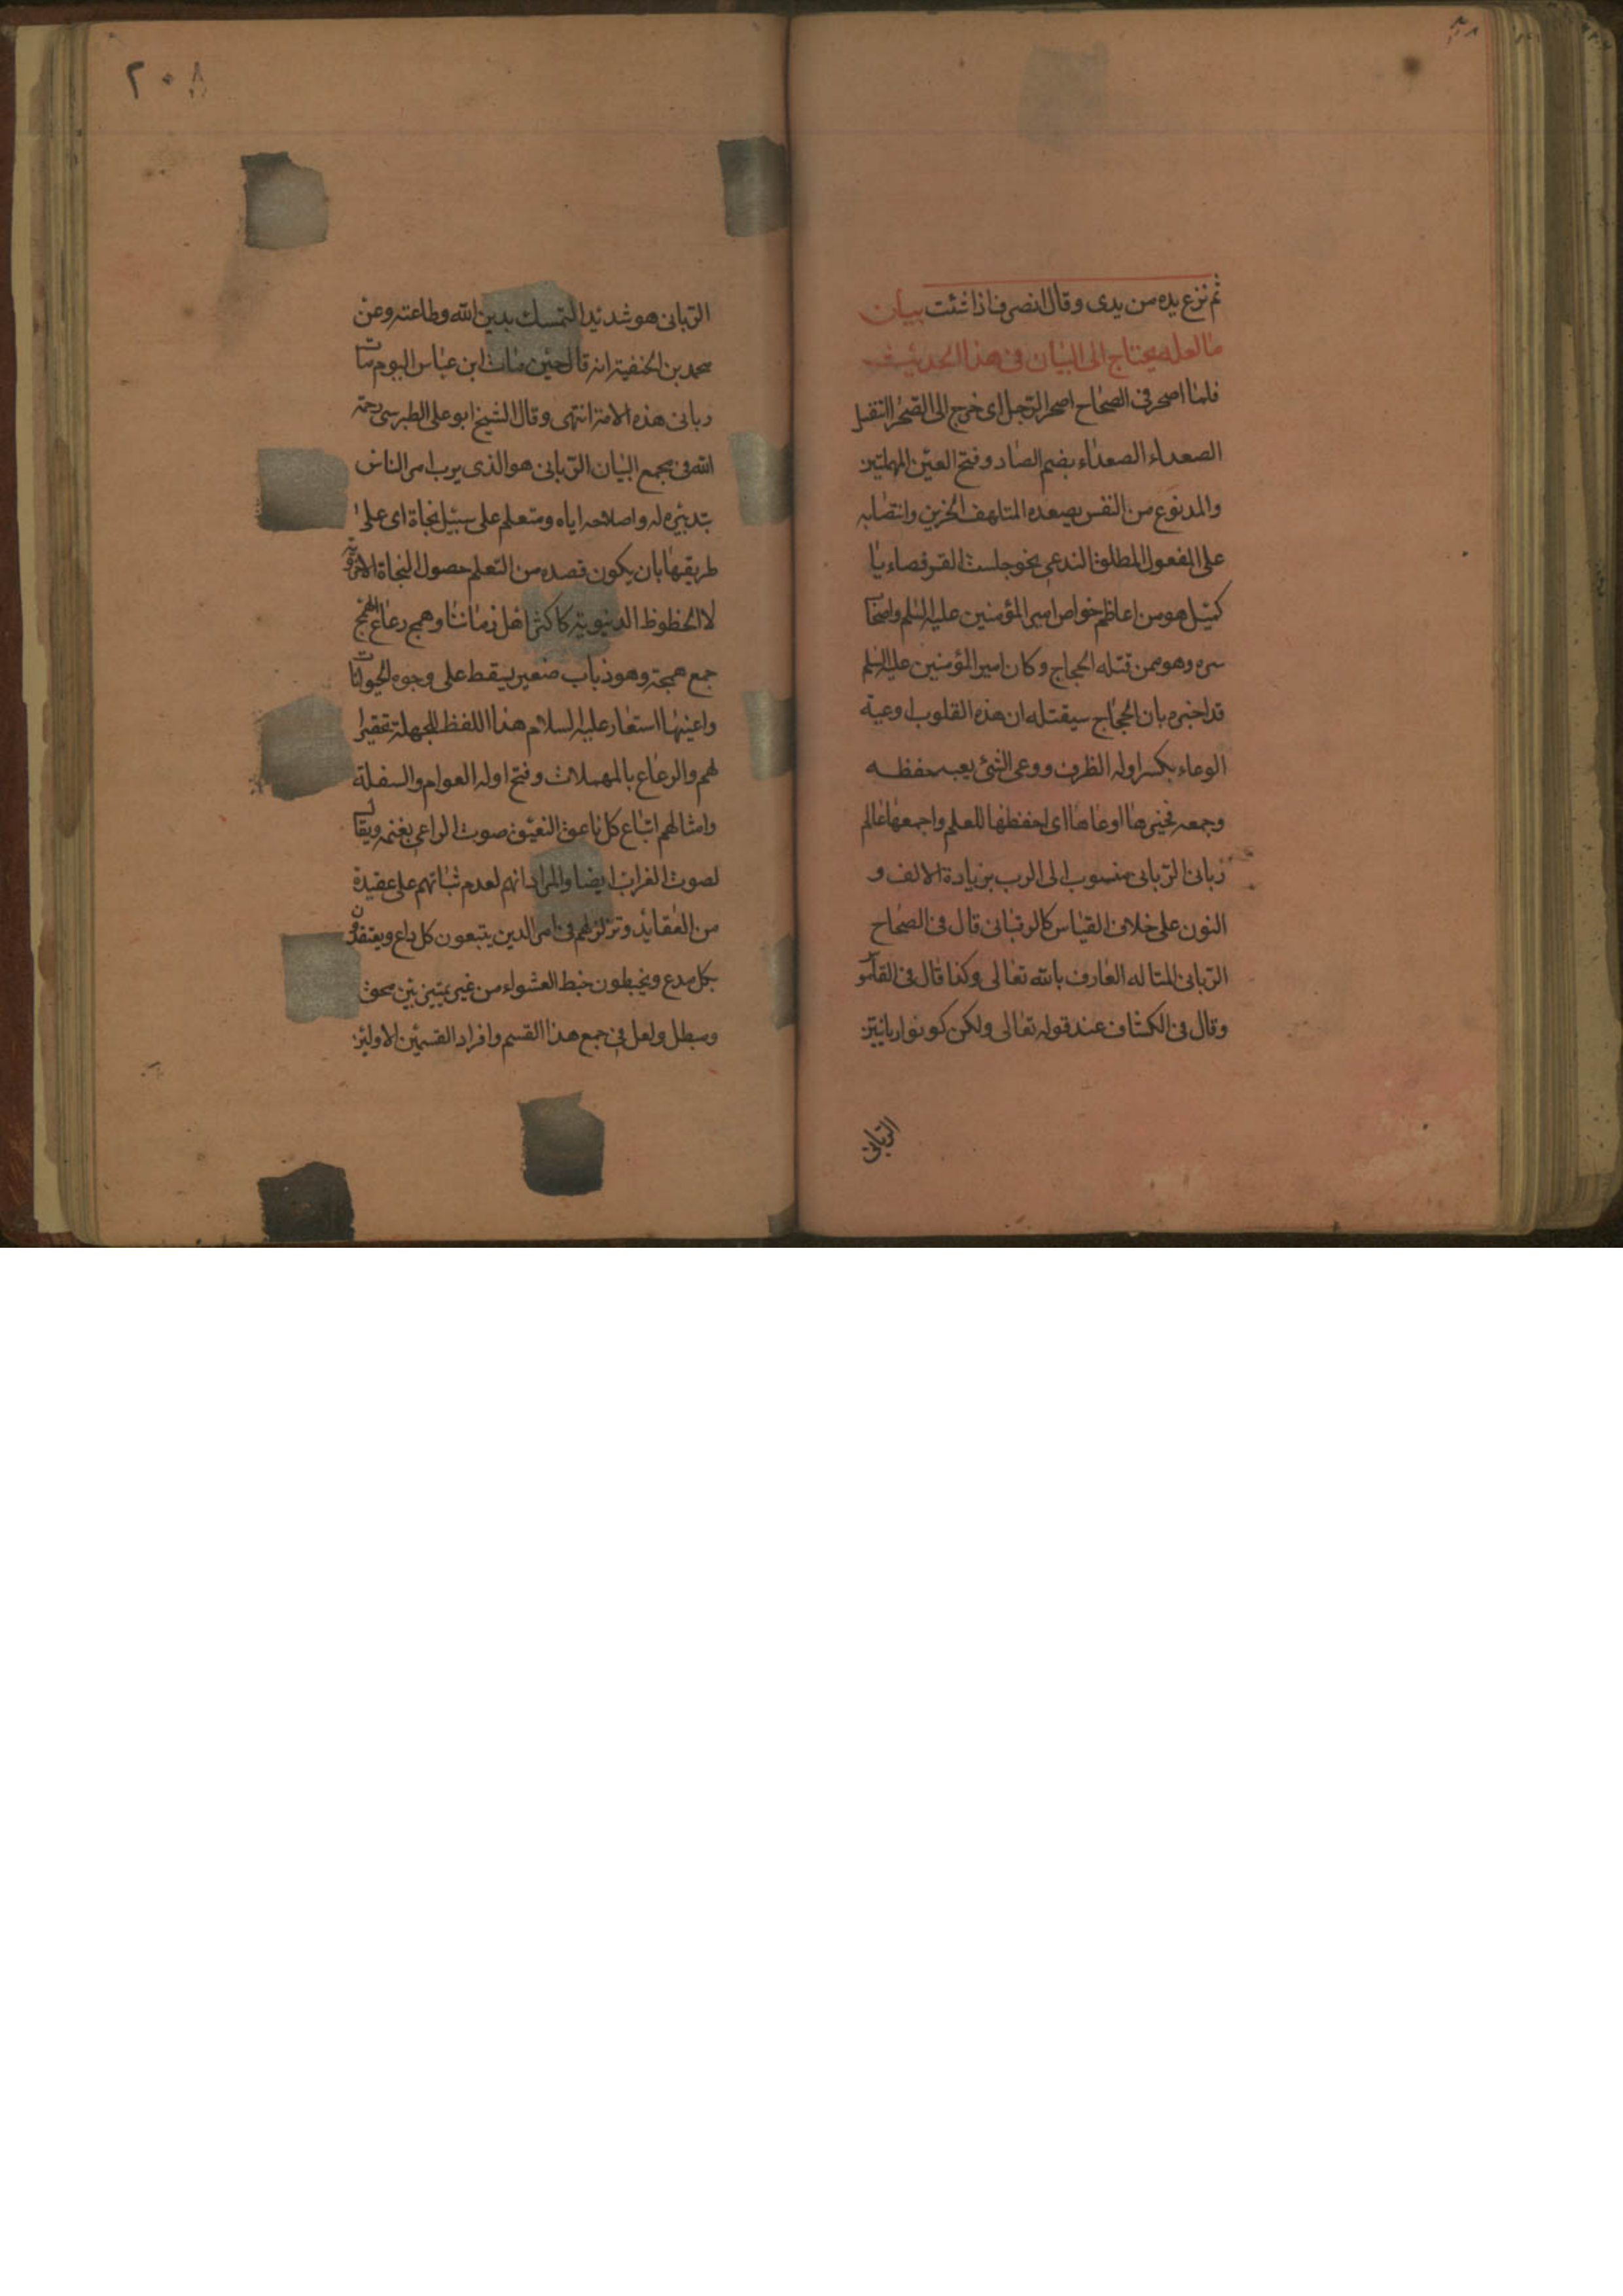 ثم نزع يده من يدى وقال انصرف اذا شئت بيان
ما لعله يحتاج الى البيان فى هذا الحديث
فلما اصحر فى الصحاح اصحر الرجل اى خرج الى الصحراء تنفس
الصعداء الصعداء بضم الصاد وفتح العين المهملتين
والمد نوع من النفس يصعده المتلهف الحزين وانتصابه
على المفعول المطلق النوعى نحو جلست القرفصاء يا
كميل هو من اعاظم خواص امير المؤمنين عليه السلم واصحاب
سره وهو ممن قتله الحجاج وكان امير المؤمنين عليه السلم
قد اخبره بان الحجاج سيقتله ان هذه القلوب اوعية
الوعاء بكسر اوله الظرف ووعى الشئ يعيه حفظه
وجمعه فخيرها اوعاها اى احفظها للعلم واجمعها عالم
ربانى الربانى منسوب الى الرب بزيادة الالف و
النون على خلاف القياس كالرقبانى قال فى الصحاح
الربانى المتاله العارف بالله تعالى وكذا قال فى القاموس
وقال فى الكشاف عند قوله تعالى ولكن كونوا ربانيين
الربانى
٢٠٨
الربانى هو شديد التمسك بدين الله وطاعته وعن
محمد بن الحنفية انه قال حين مات ابن عباس اليوم مات
ربانى هذه الامة انتهى وقال الشيخ ابو على الطبرسى رحمه
الله فى مجمع البيان الربانى هو الذى يرب امر الناس
بتدبيره له واصلاحه اياه ومتعلم على سبيل نجاة اى على
طريقها بان يكون قصده من التعلم حصول النجاة الاخروية
لا الحظوظ الدنيوية كاكثر اهل زماننا وهمج رعاع الهمج
جمع همجة وهو ذباب صغير يسقط على وجوه الحيوانات
واعينها استعار عليه السلام هذا اللفظ للجهلة تحقيرا
لهم والرعاع بالمهملات وفتح اوله العوام والسفلة
وامثالهم اتباع كل ناعق النعيق صوت الراعى بغنمه ويقال
لصوت الغراب ايضا والمراد انهم لعدم ثباتهم على عقيدة
من العقايد وتزلزلهم فى امر الدين يتبعون كل داع ويعتقدون
بكل مدع ويخبطون خبط العشواء من غير تمييز بين محق
ومبطل ولعل فى جمع هذا القسم وافراد القسمين الاولين